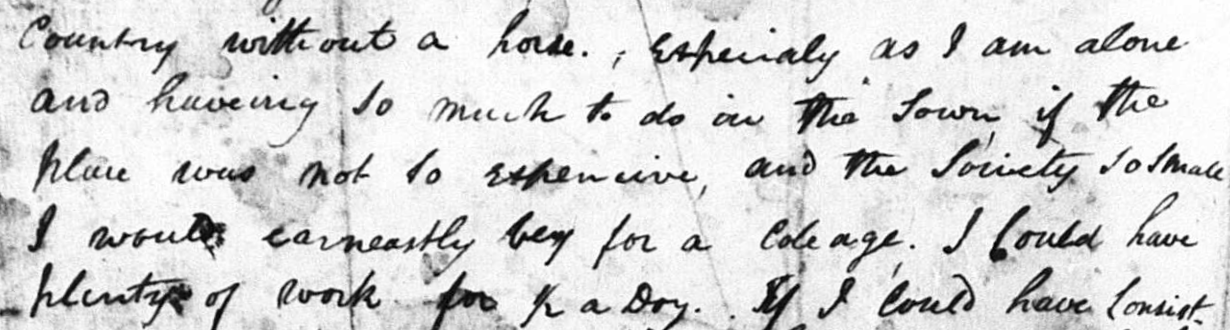 Country without a horse. , Especialy as I am alone
and haveing so much to do in the Town, if the
place was not so expencive, and the Society so small
I would earneastly beg for a Coleage. I Could have
plenty of work for a Day. If I Could have Consist-